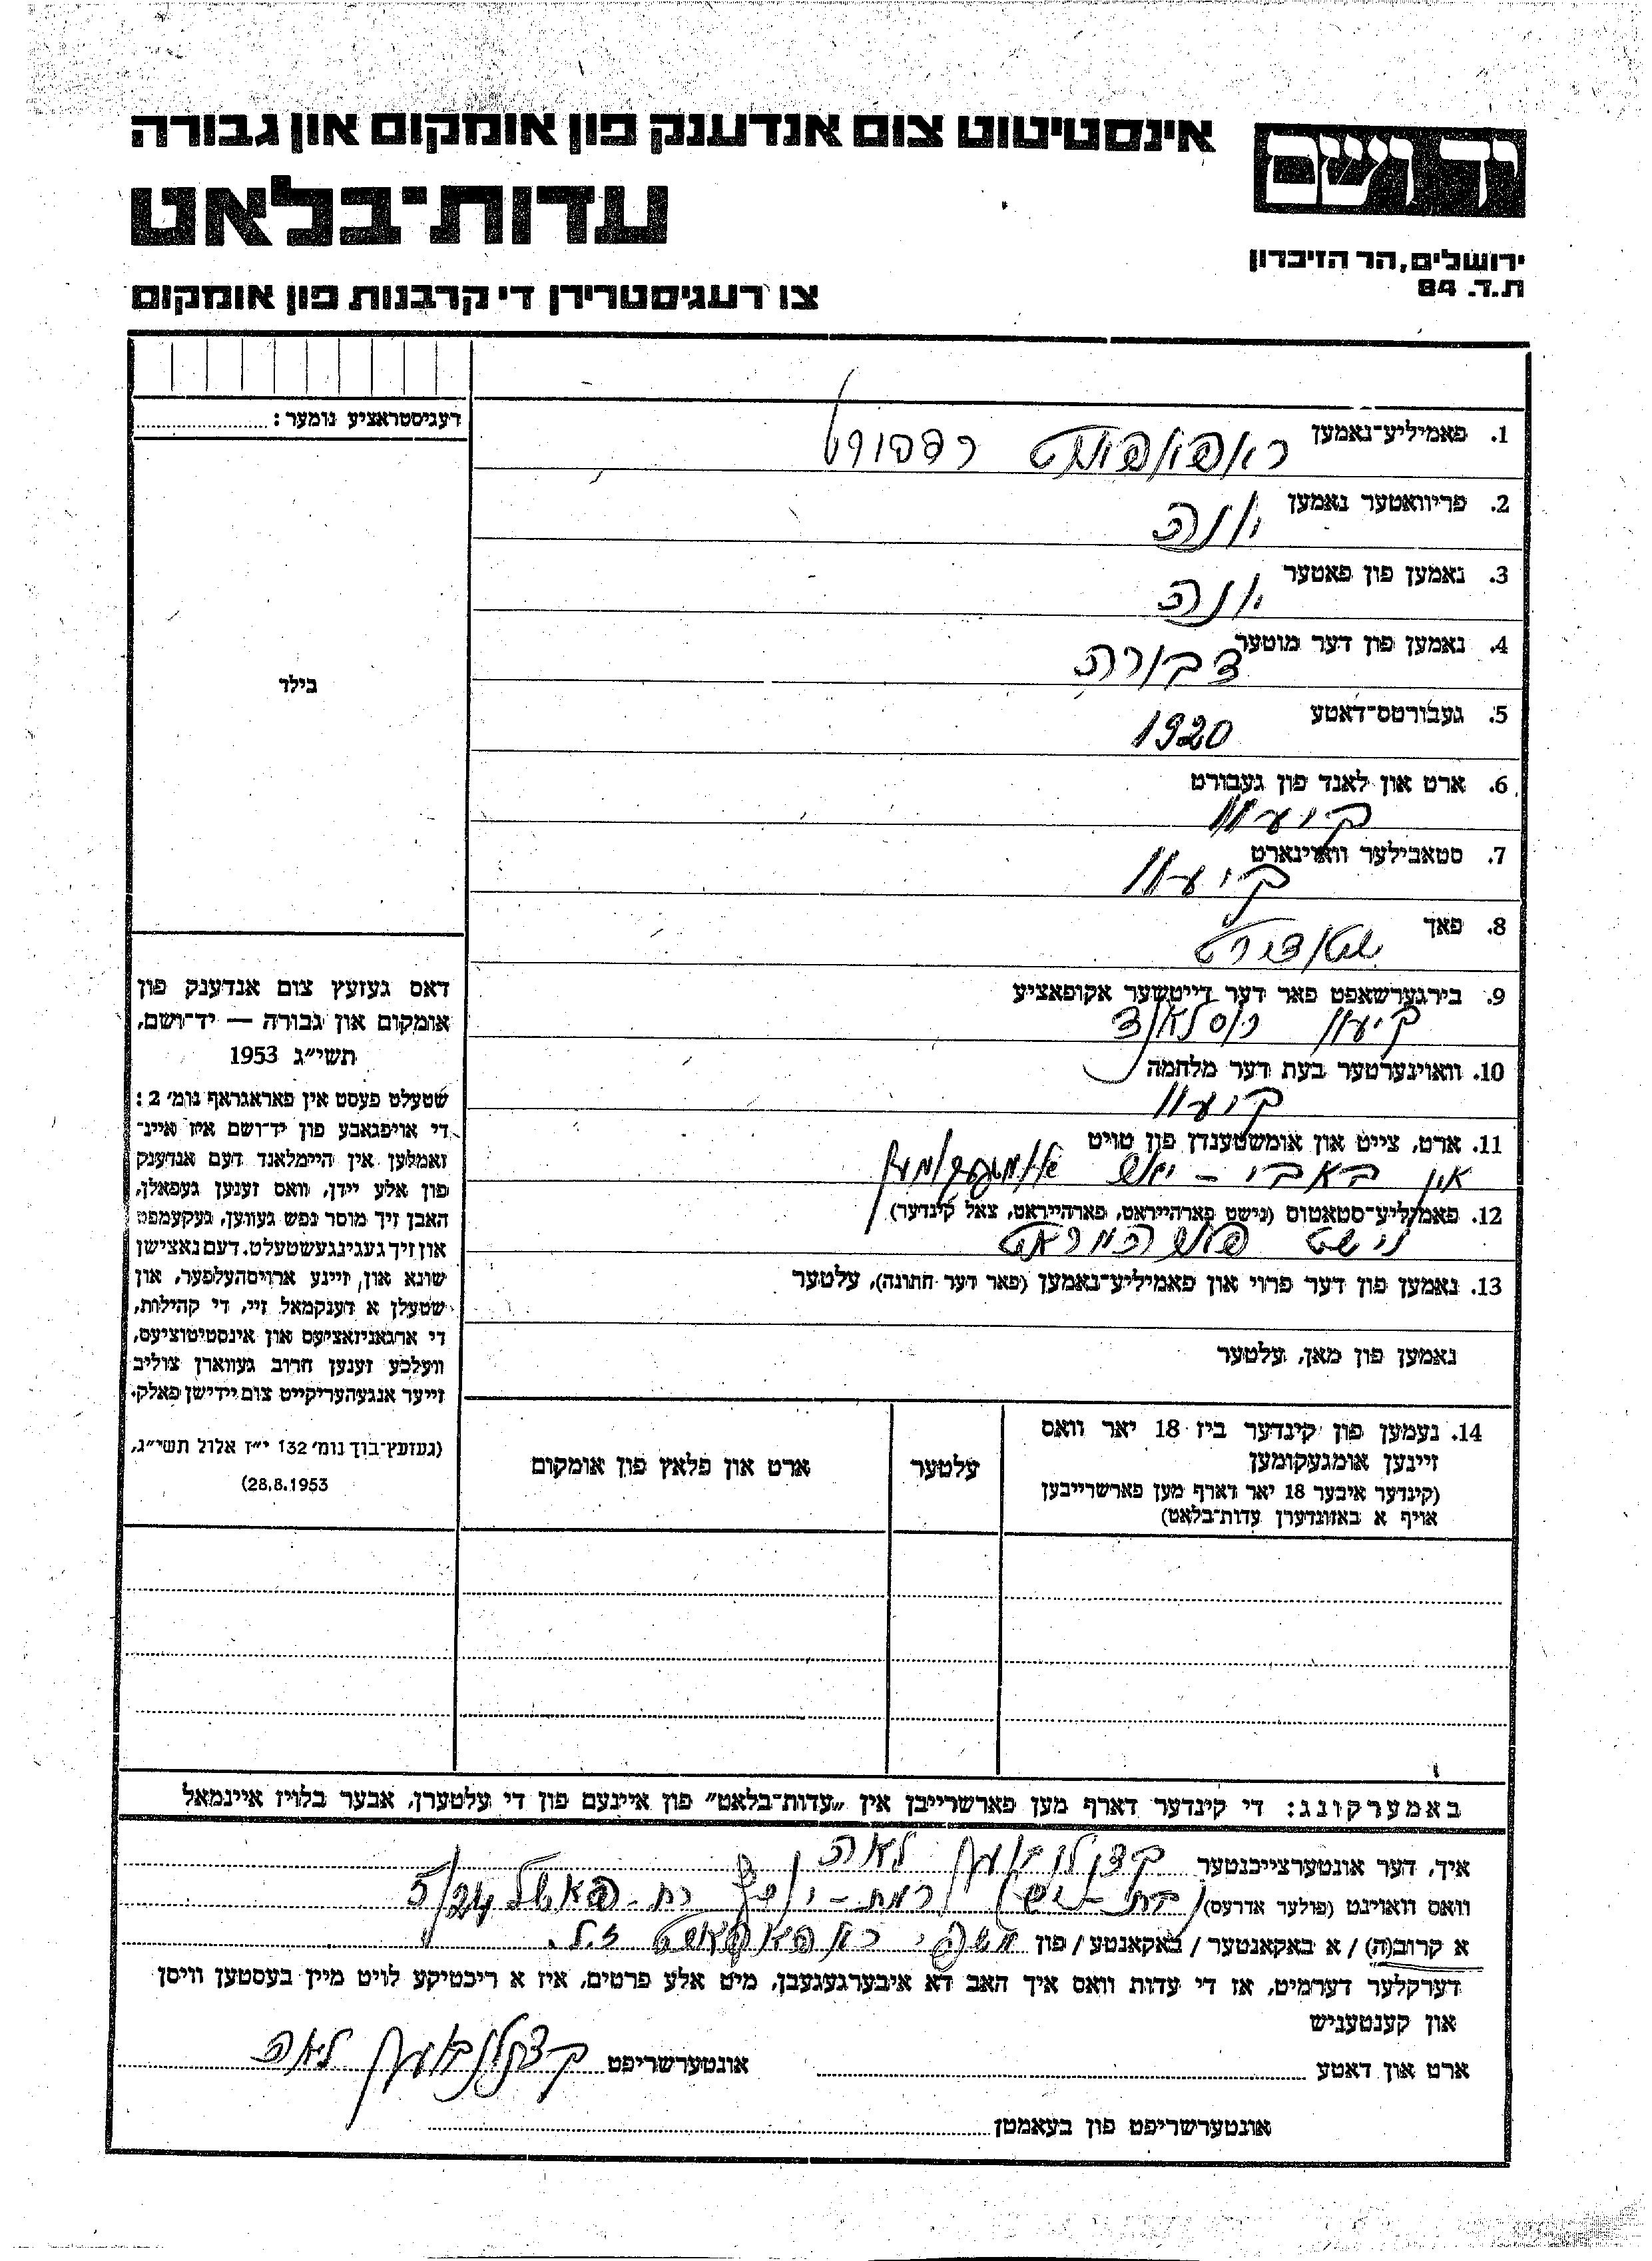 יד ושם
אינסטיטוט צום אנדענק פון אומקום און גבורה
עדות־בלאט
ירושלים, הר הזיכרון
ת.ד. 84
צו רעגיסטרירן די קרבנות פון אומקום
רעגיסטראציע נומער:
1. פאמיליע־נאמען ראפאפורט רפפורט
2. פריוואטער נאמען יונה
3. נאמען פון פאטער יונה
4. נאמען פון דער מוטער דבורה
5. געבורטס־דאטע 1920
6. ארט און לאנד פון געבורט
קיעוו
7. סטאבילער וואוינארט
קיעוו
8. פאך
9. בירגערשאפט פאר דער דייטשער אקופאציע
קיעוו רוסלאנד
10. וואוינערטער בעת דער מלחמה
קיעוו
11. ארט, צייט און אומשטענדן פון טויט
אין באבי - יאר אומגעקומען
12. פאמיליע־סטאטוס (נישט פארהייראט, פארהייראט, צאל קינדער)
נישט פארהייראט
13. נאמען פון דער פרוי און פאמיליע־נאמען (פאר דער חתונה), עלטער
נאמען פון מאן, עלטער
בילד
דאס געזעץ צום אנדענק פון
אומקום און גבורה — יד־ושם,
תשי״ג 1953
שטעלט פעסט אין פאראגראף נומ׳ 2:
די אויפגאבע פון יד־ושם איז איינ־
זאמלען אין היימלאנד דעם אנדענק
פון אלע יידן, וואס זענען געפאלן,
האבן זיך מוסר נפש געווען, געקעמפט
און זיך געגינגעשטעלט. דעם נאצישן
שונא און, זיינע ארויסהעלפער, און
שטעלן א דענקמאל זיי, די קהילות,
די ארגאניזאציעס און אינסטיטוציעס,
וועלכע זענען חרוב געווארן צוליב
זייער אנגעהעריקייט צום יידישן פאלק.
(געזעץ־בוך נומ׳ 132 י״ז אלול תשי״ג,
28.8.1953)
14. נעמען פון קינדער ביז 18 יאר וואס
זיינען אומגעקומען
(קינדער איבער 18 יאר דארף מען פארשרייבן
אויף א באזונדערן עדות־בלאט)
עלטער
ארט און פלאץ פון אומקום
באמערקונג: די קינדער דארף מען פארשרייבן אין „עדות־בלאט״ פון איינעם פון די עלטערן, אבער בלויז איינמאל
איך, דער אונטערצייכנטער לאה
וואס וואוינט (פולער אדרעס) (בת - ים) רמת - יוסף רח - 5/24
א קרוב(ה) / א באקאנטער / באקאנטע / פון ראפאפארט ז.ל.
דערקלער דערמיט, אז די עדות וואס איך האב דא איבערגעגעבן, מיט אלע פרטים, איז א ריכטיקע לויט מיין בעסטען וויסן
און קענטעניש
ארט און דאטע אונטערשריפט לאה
אונטערשריפט פון בעאמטן